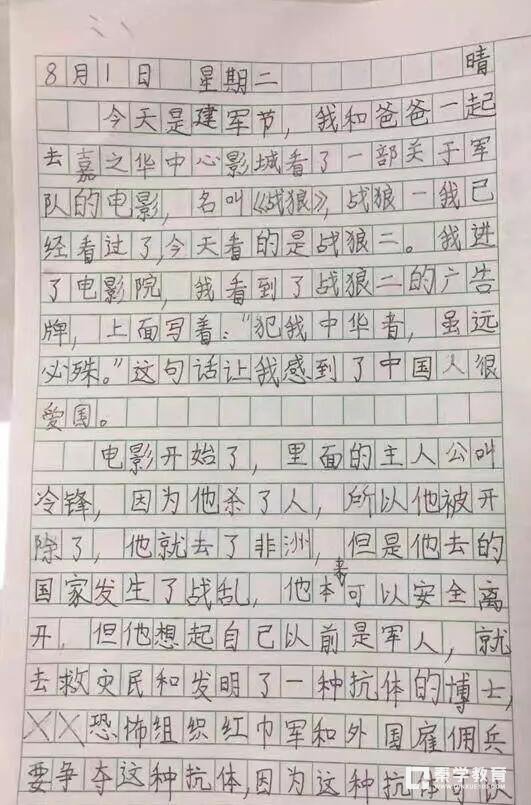 8月1日 星期二 晴
今天是建军节，我和爸爸一起
去嘉之华中心影城看了一部关于军
队的电影，名叫《战狼》，战狼一我已
经看过了，今天看的是战狼二。我进
了电影院，我看到了战狼二的广告
牌，上面写着：“犯我中华者，虽远
必殊。”这句话让我感到了中国人很
爱国。
电影开始了，里面的主人公叫
冷锋，因为他杀了人，所以他被开
除了，他就去了非洲，但是他去的
国家发生了战乱，他本来可以安全离
开，但他想起自己以前是军人，就
去救灾民和发明了一种抗体的博士，
恐怖组织红巾军和外国雇佣兵
要争夺这种抗体，因为这种抗体
秦学教育
WWW.QINXUE100.COM